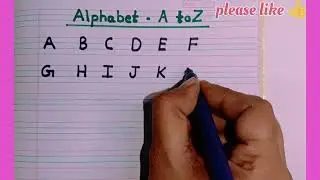 please like 👍
Alphabet - A to Z
A B C D E F
G H I J K